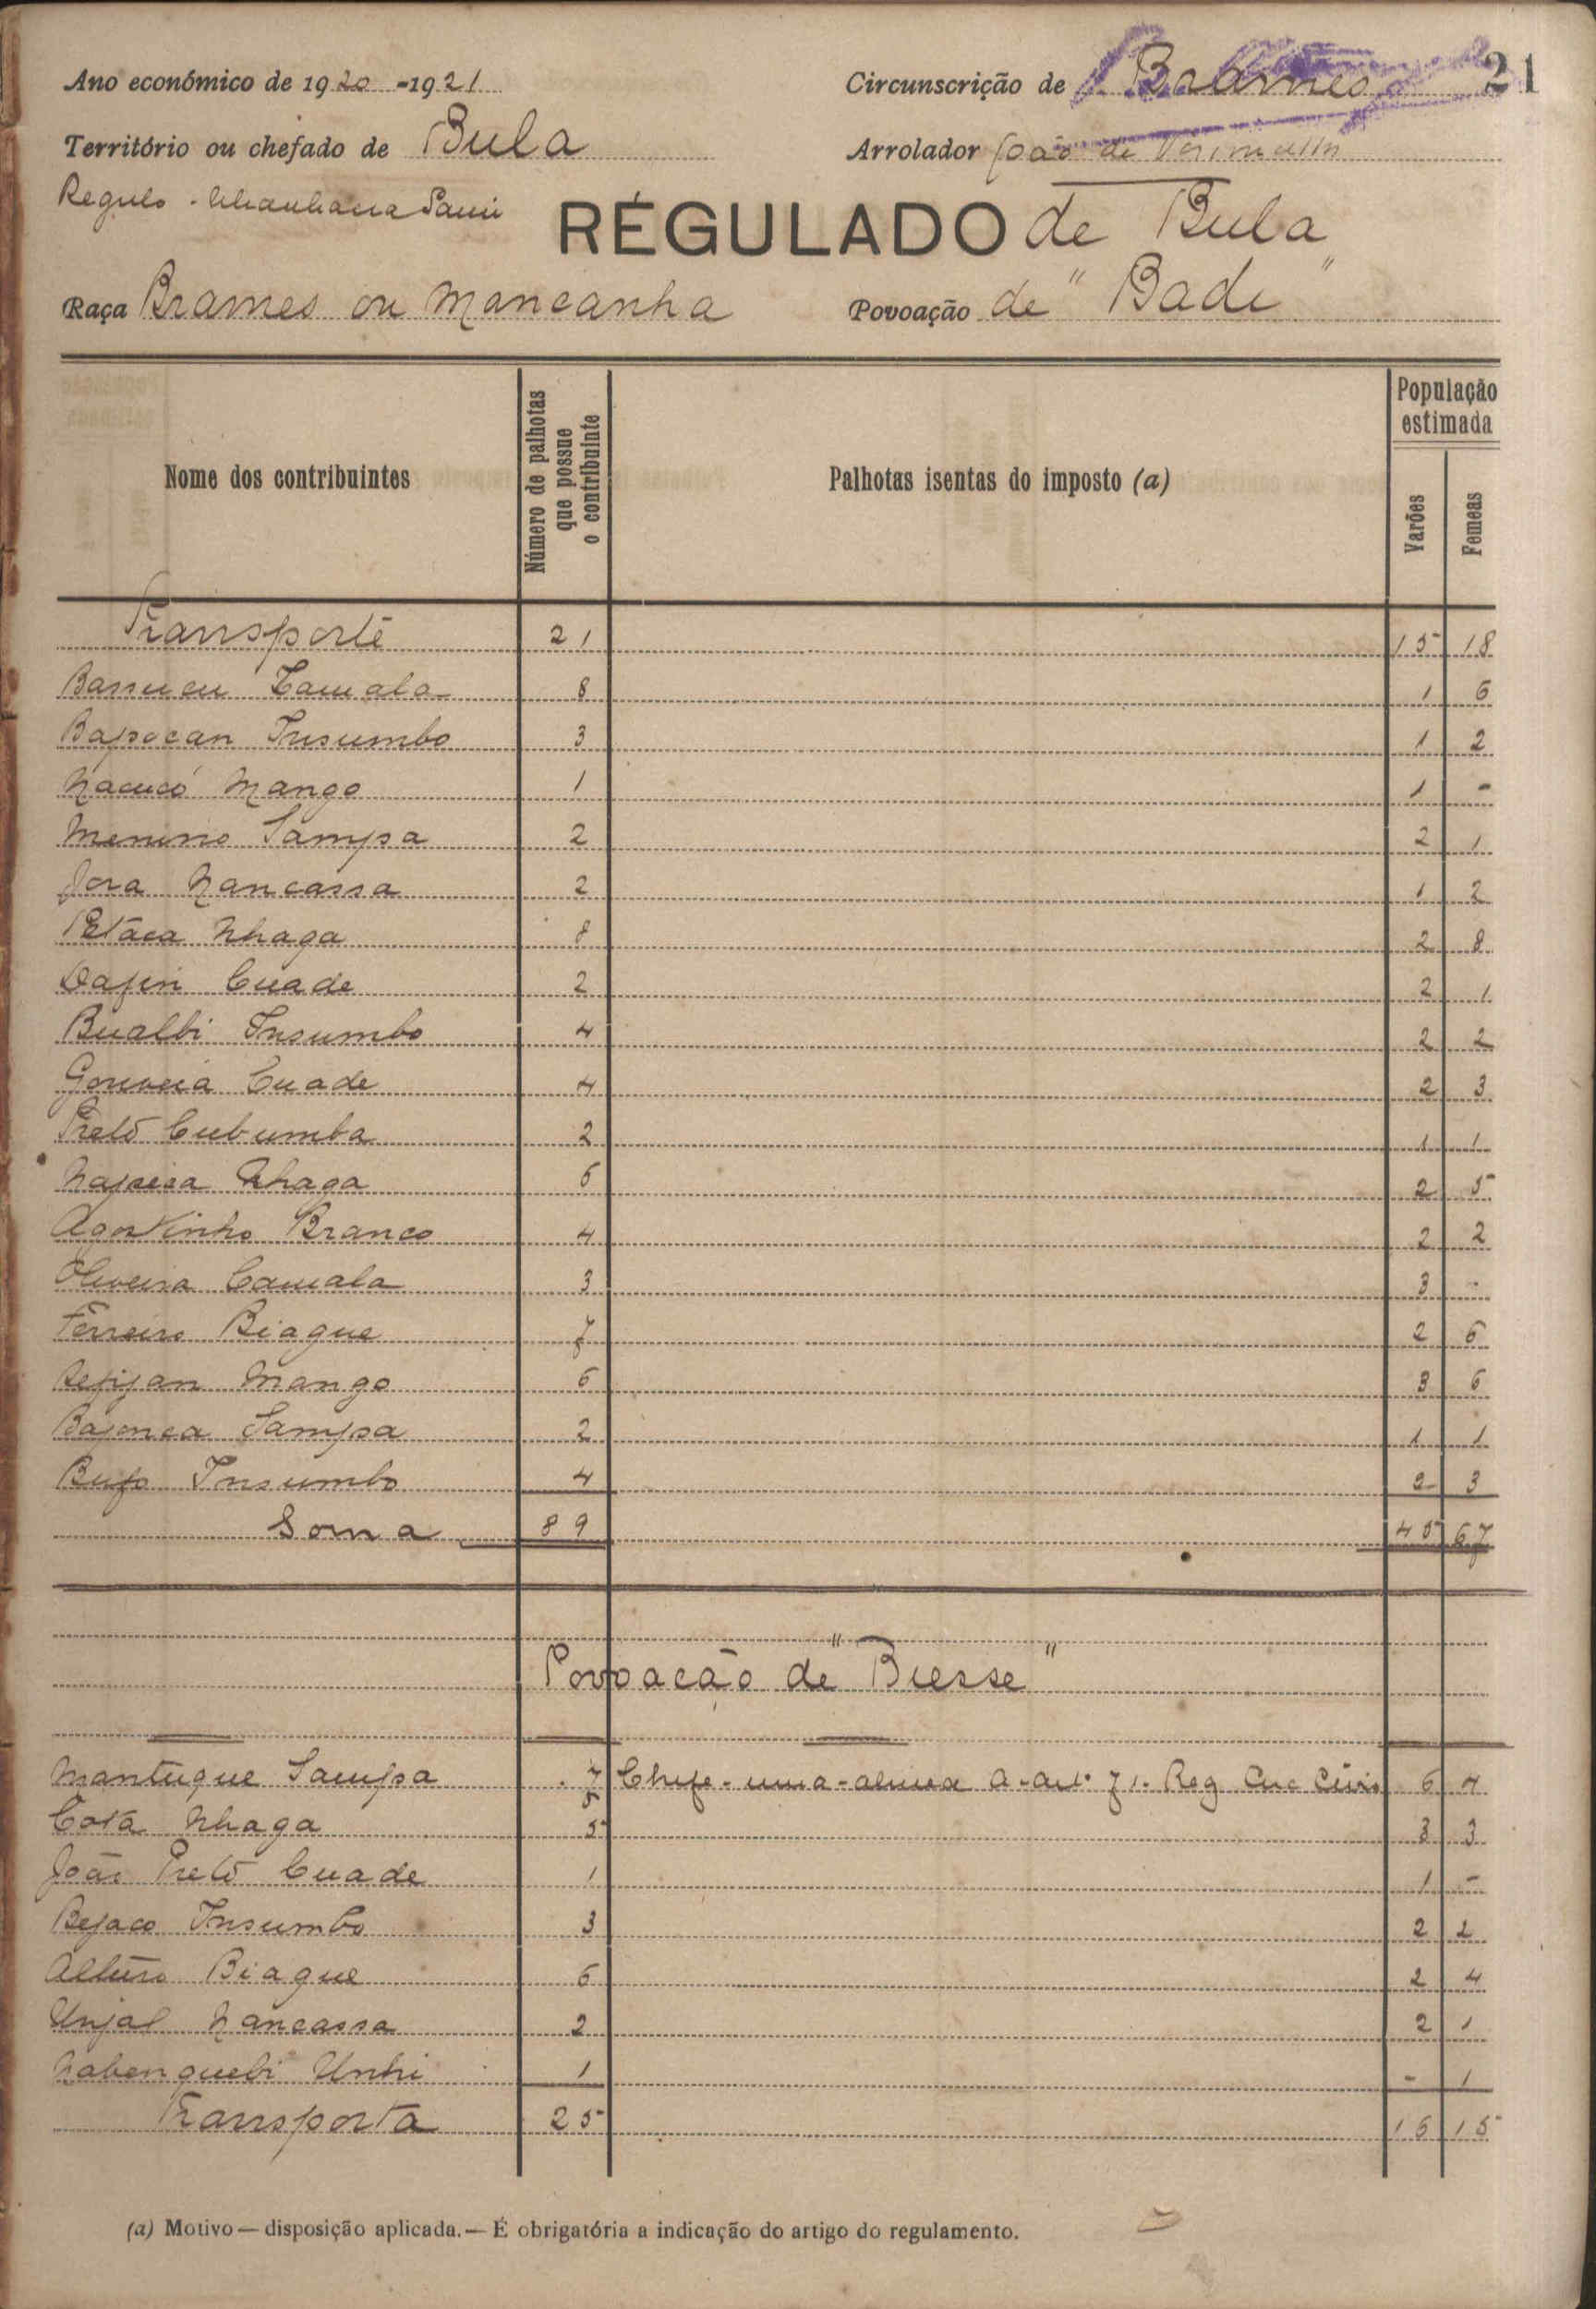 Ano económico de 1920-1921 Circunscrição de Brames 21
Território ou chefado de Bula Arrolador João de
Regulo -
RÉGULADO de Bula
Raça Brames ou Mancanha Povoação de "Badi"
Nome dos contribuintes Número de palhotas que possue o contribuinte Palhotas isentas do imposto (a) População estimada Varões Femeas
Transporte 21 15 18
Bassucu Camala 8 1 6
Bapocan Insumbo 3 1 2
Nacucó Mango 1 1 -
Menino Sampa 2 2 1
Jora Nancassa 2 1 2
Petaca Nhaga 8 2 8
Dafin Cuade 2 2 1
Bualbi Insumbo 4 2 2
Gouveia Cuade 4 2 3
Preto Cubumba 2 1 1
Napeca Nhaga 6 2 5
Agostinho Branco 4 2 2
Oliveira Camala 3 3 -
Ferreiro Biague 7 2 6
Refijan Mango 6 3 6
Bajonca Sampa 2 1 1
Bufo Insumbo 4 2 3
Soma 89 45 67
Povoação de "Biesse"
Mantuque Sampa 7 Chefe - uma - alinea a - artº 71. Reg Circ Civis 6 4
Cota Nhaga 5 3 3
João Preto Cuade 1 1 -
Bejaco Insumbo 3 2 2
Arturo Biague 6 2 4
Unjal Nancassa 2 2 1
Nabenquebi Unhi 1 - 1
Transporta 25 16 15
(a) Motivo — disposição aplicada. — É obrigatória a indicação do artigo do regulamento.